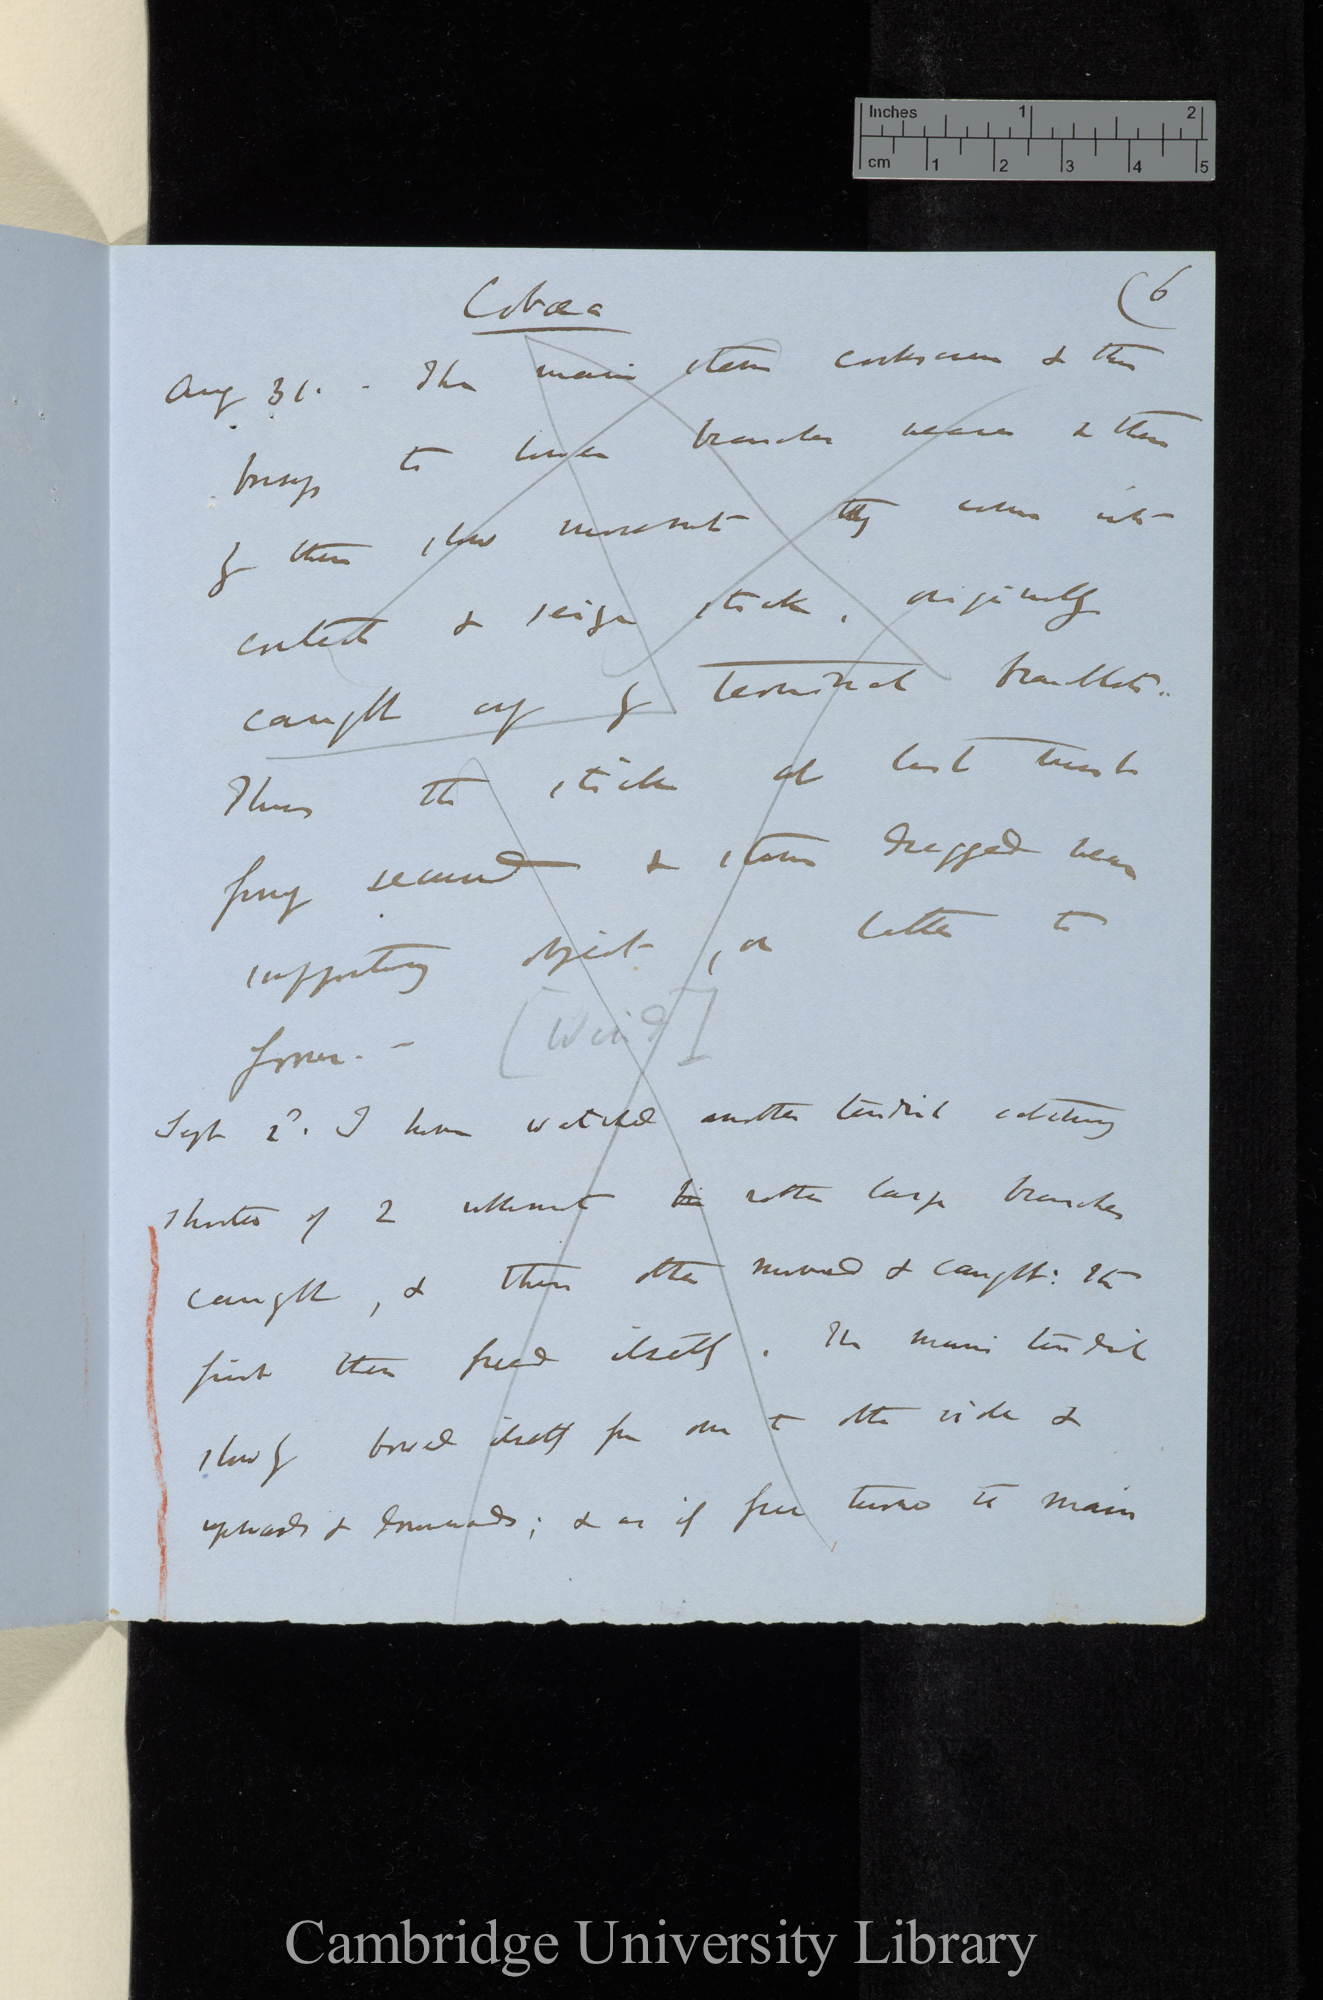 Inches 1 2
cm 1 2 3 4 5
(6
Cobæa
Aug 31. - The main stem corkscrews & thus
brings the lower branches nearer & then
by their slow movement they come into
contact & seize stick, originally
caught up by terminal branchlets..
Thus the stick at last must
firmly secured & stem dragged near
supporting object, or latter to
former. -
[Wind]
Sept 2d. I have watched another tendril catching
shorter of 2 rather large branches
caught, & then other moved & caught: the
first then freed itself. The main tendril
slowly bowed itself from one to other side &
upwards & downwards; & as if free turns to main
Cambridge University Library